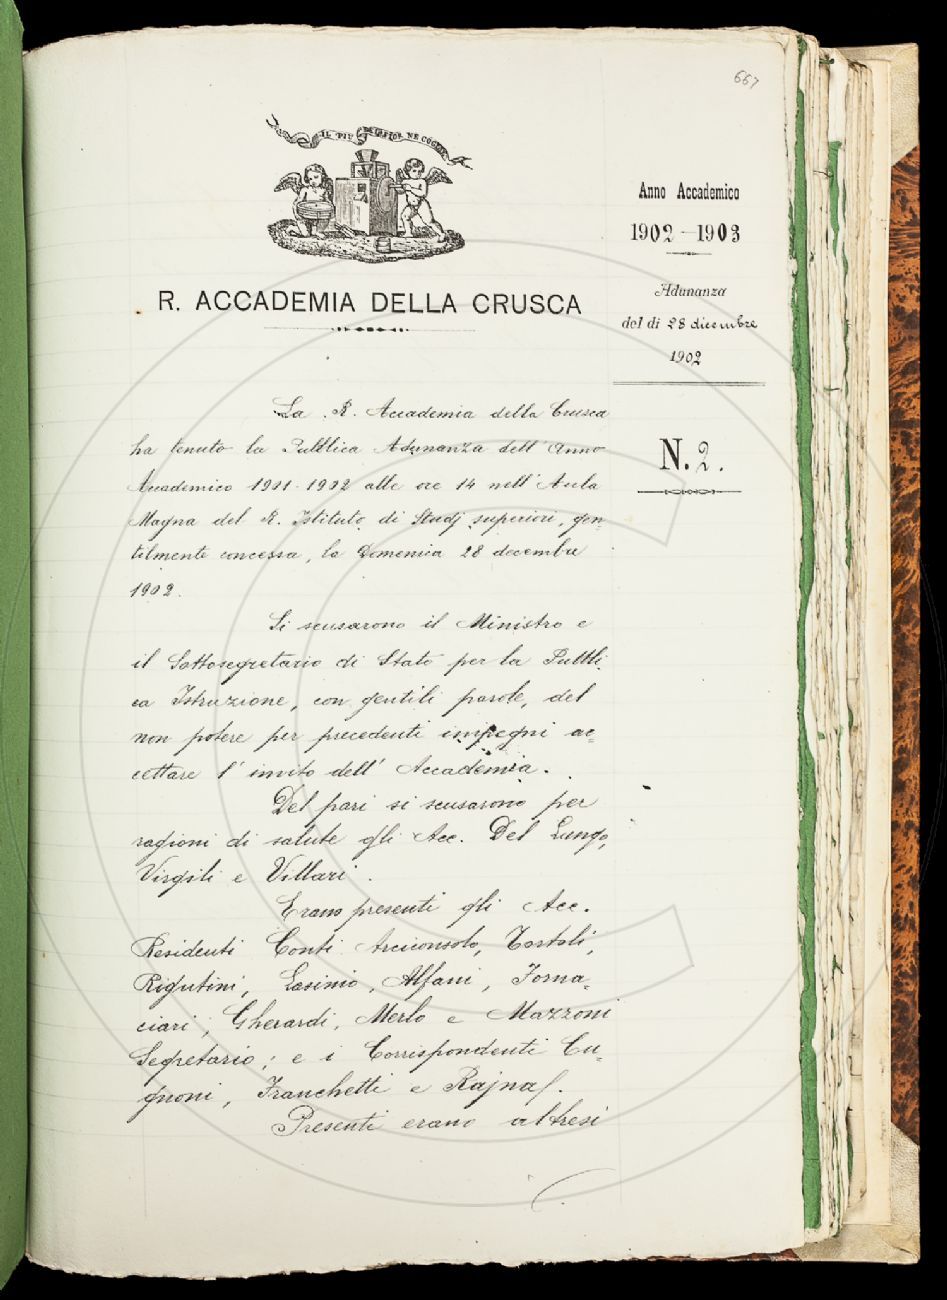 667
IL PIÙ BEL FIOR NE COGLIE
Anno Accademico
1902-1903
R. ACCADEMIA DELLA CRUSCA
Adunanza
del dì 28 dicembre
1902
N. 2.
La R. Accademia della Crusca
ha tenuto la Pubblica Adunanza dell'Anno
Accademico 1901-1902 alle ore 14 nell'Aula
Magna del R. Istituto di Studj superiori, gen
tilmente concessa, la Domenica 28 decembre
1902.
Si scusarono il Ministro e
il Sottosegretario di Stato per la Pubbli
ca Istruzione, con gentili parole, del
non potere per precedenti impegni ac-
cettare l'invito dell'Accademia.
Del pari si scusarono per
ragioni di salute gli Acc. Del Lungo,
Virgili e Villari.
Erano presenti gli Acc.
Residenti Conti Arciconsolo, Tortoli,
Rigutini, Lasinio, Alfani, Forna-
ciari, Gherardi, Merlo e Mazzoni
Segretario; e i Corrispondenti Cu-
gnoni, Franchetti e Rajna.
Presenti erano altresì